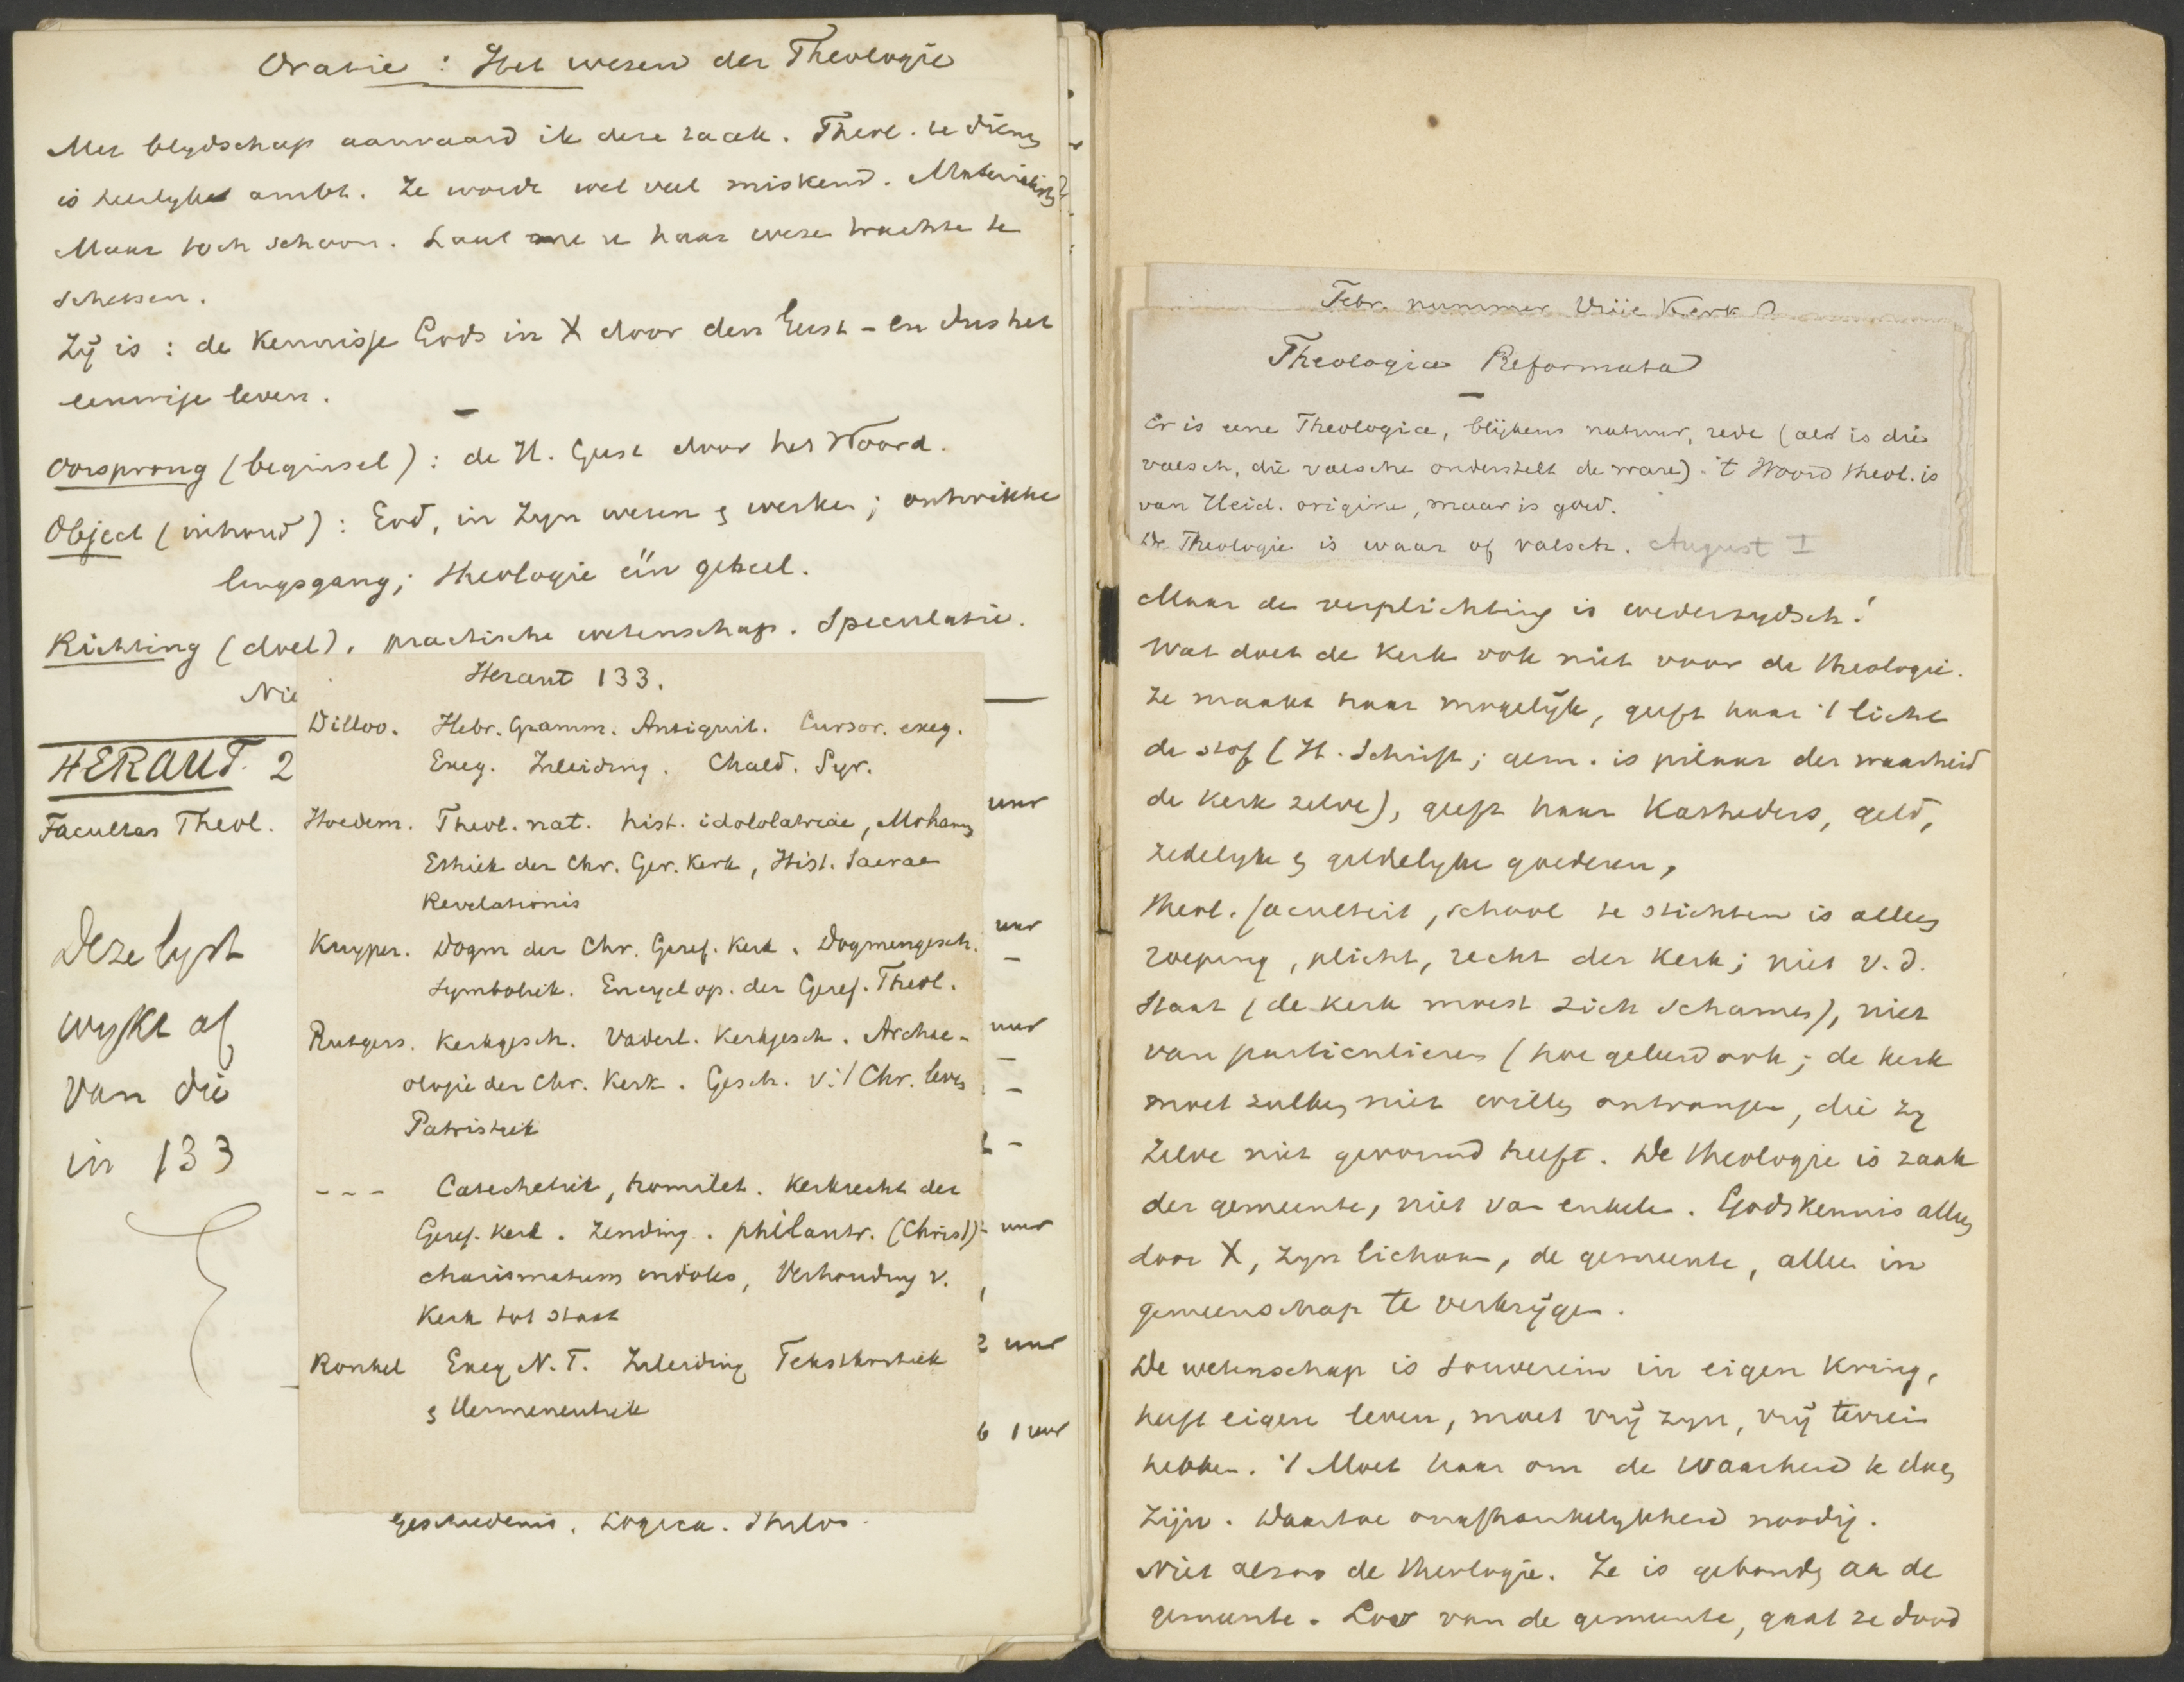 Oratie : Het wesen der Theologie
Met blydschap aanvaard ik deze zaak. Theol. te dienen
is heerlyk ambt. Ze worde wel veel miskend. Materialisten
Maar toch schoon. Laat me u haar weze trachte te
schetsen.
Zij is : de Kennisse Gods in X door den Geest - en dus het
eeuwige leven.
Oorsprong (beginsel) : de H. Geest door het Woord.
Object (inhoud) : God, in Zyn wesen & werken ; ontwikke
lingsgang ; theologie één geheel.
Richting (doel). practische wetenschap. Speculatie.
Nie
HERAUT. 2
Facultas Theol.
Deze lyst
wykt af
van die
in 133
Heraut 133.
Dilloo. Hebr. Gramm. Antiquit. Cursor. exeg.
Exeg. Inleiding. Chald. Syr.
Hoedem. Theol. nat. hist. idololatriae, Moham
Ethiek der Chr. Ger. Kerk, Hist. Sacrae
Revelationis
Kuyper. Dogm der Chr. Geref. Kerk. Dogmengesch.
Symboliek. Encyclop. der Geref. Theol.
Rutgers. Kerkgesch. Vaderl. Kerkgesch. Archae-
ologie der Chr. Kerk. Gesch. v. 't Chr. leven
Patristiek
- - - Catechetiek, homilet. Kerkrecht der
Geref. Kerk. Zending. philantr. (Christ)
charismatum indoles, Verhouding v.
Kerk tot staat
Ronkel Exeg N.T. Inleiding Tekstkritiek
& Hermeneutiek
uur
uur
uur
uur
2 uur
6 1 uur
Geschiedenis. Logica. Philos.
Febr. nummer Vrije Kerk
Theologia Reformata
Er is eene Theologia, blijkens natuur, rede (ald is die
valsch, die valsche onderstelt de ware). 't Woord theol. is
van Heid. origine, maar is goed.
De Theologie is waar of valsch. August I
Maar de verplichting is wederzydsch!
Wat doet de Kerk ook niet voor de theologie.
Ze maakt haar mogelijk, geeft haar 't licht
de stof (H. Schrift ; gem. is pilaar der waarheid
de Kerk zelve), geeft haar Katheders, geld,
zedelyke & geldelyke goederen,
Theol. faculteit, school te stichten is alleen
roeping, plicht, recht der Kerk ; niet v. d.
Staat (de Kerk moest zich schamen), niet
van particulieren (hoe geleerd ook ; de kerk
moet zulken niet willen ontvangen, die zy
zelve niet gevormd heeft. De theologie is zaak
der gemeente, niet van enkelen. Godskennis alleen
door X, Zyn lichaam, de gemeente, alleen in
gemeenschap te verkrijgen.
De wetenschap is souverein in eigen Kring,
heeft eigen leven, moet vrij zyn, vrij terrein
hebben. 't Moet haar om de waarheid te doen
zijn. Daartoe onafhankelykheid noodig.
Niet alzoo de theologie. Ze is gebonden aan de
gemeente. Los van de gemeente, gaat ze dood